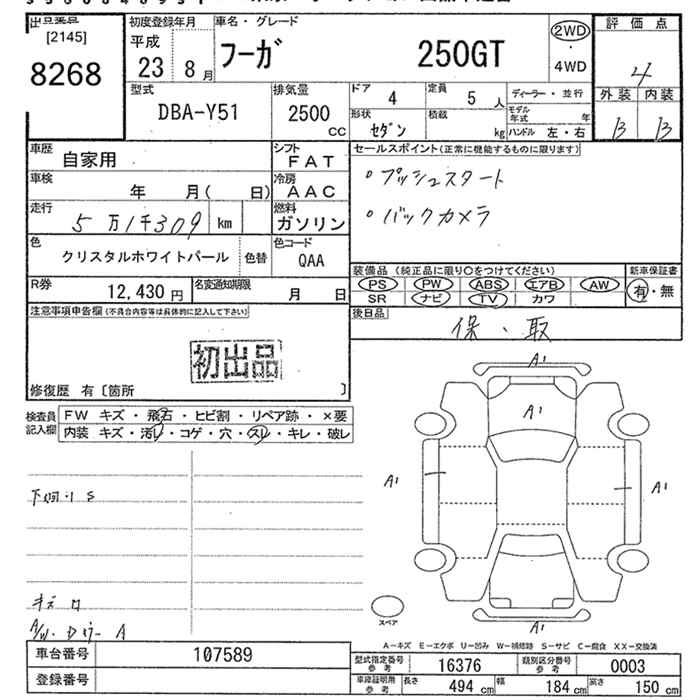 [2145]
8268
初度登録年月
平成
23 8月
車名・グレード
フーガ 250GT
2WD
・
4WD
評価点
4
外装 内装
B B
型式
DBA-Y51
排気量
2500
CC
ドア 4
定員 5人
ディーラー・並行
形状 セダン
積載 kg
モデル年式 年
ハンドル 左・右
車歴 自家用
シフト
FAT
車検 年 月( 日)
冷房
AAC
走行 5万1千309 km
燃料
ガソリン
色
クリスタルホワイトパール
色替
色コード
QAA
R券 12,430円
名変通知期限
月 日
セールスポイント(正常に機能するものに限ります)
・プッシュスタート
・バックカメラ
装備品(純正品に限り○をつけてください)
新車保証書
PS PW ABS エアB AW
SR ナビ TV カワ
有・無
後日品
保・取
注意事項申告欄(不具合内容等は具体的に記入して下さい)
初出品
修復歴 有〔箇所 〕
検査員
記入欄
FW キズ・飛石・ヒビ割・リペア跡・×要
内装 キズ・汚レ・コゲ・穴・スレ・キレ・破レ
キズ
A/W A
A1
A1
A1
A1
A1
スペア
A-キズ E-エクボ U-凹み W-補修跡 S-サビ C-腐食 XX-交換済
車台番号 107589
登録番号
型式指定番号
参考
16376
類別区分番号
参考
0003
車庫証明用
参考
長さ 494cm
幅 184cm
高さ 150cm